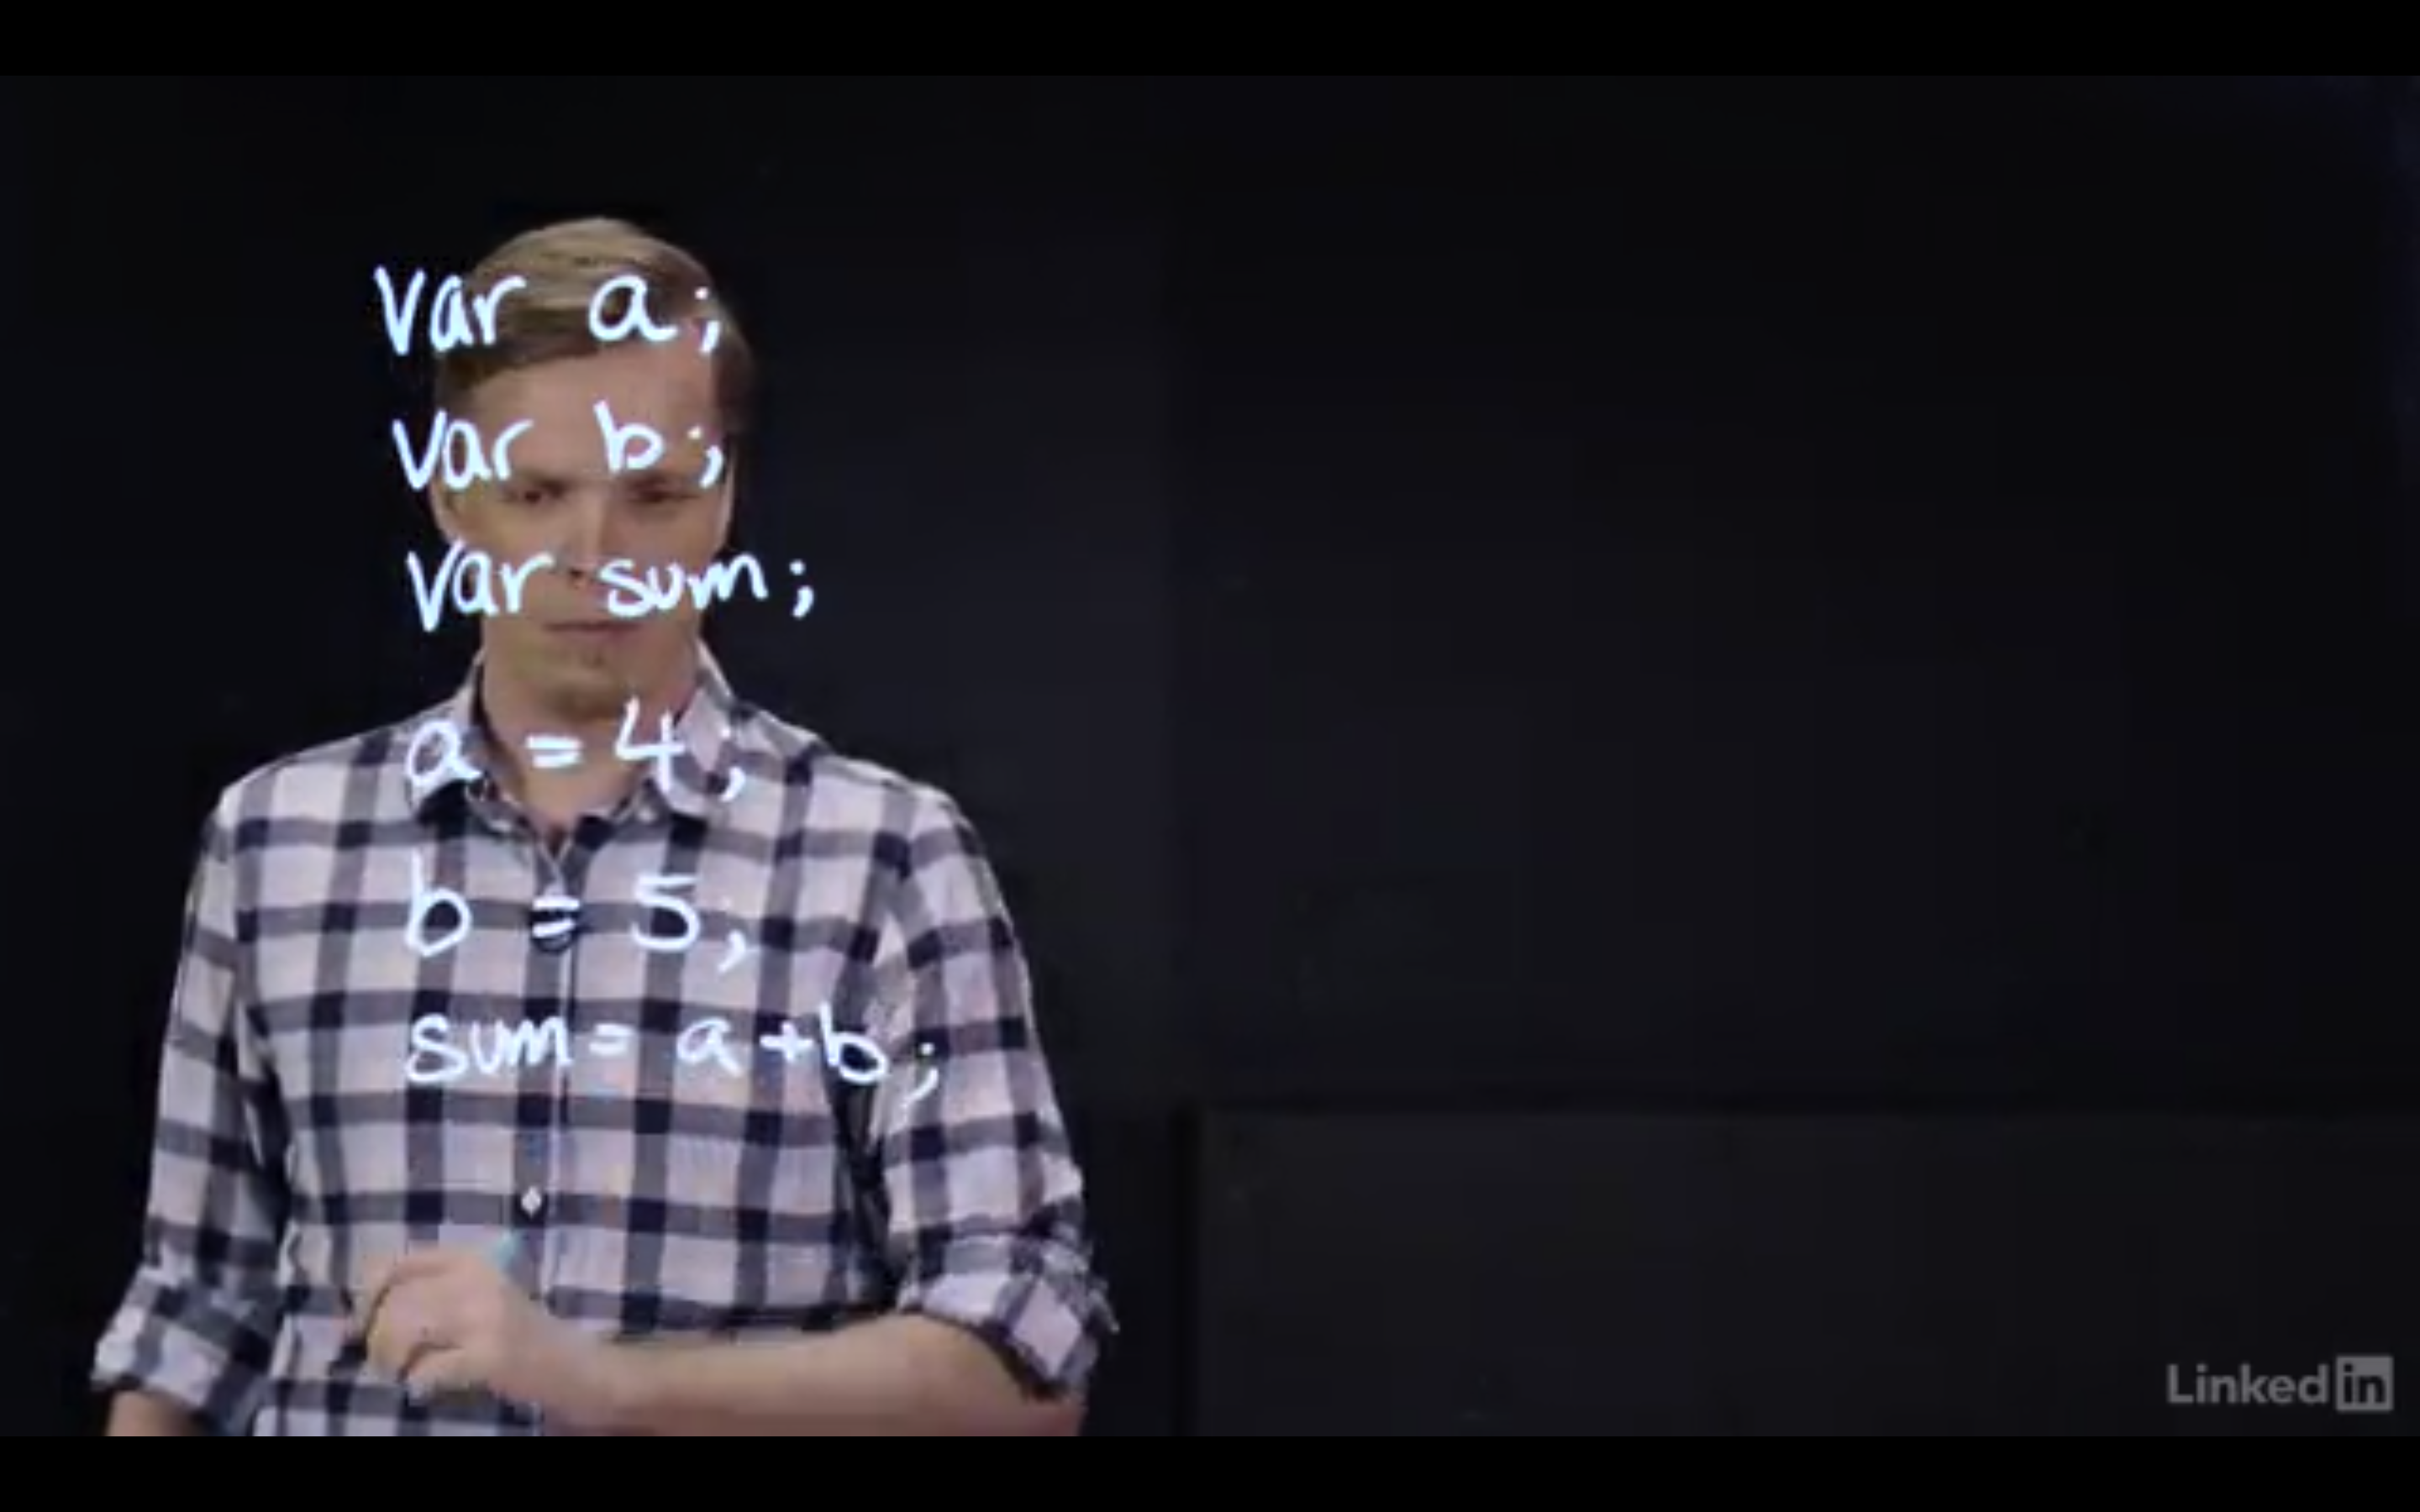 var a;
var b;
var sum;
a = 4;
b = 5;
sum = a + b;
LinkedIn